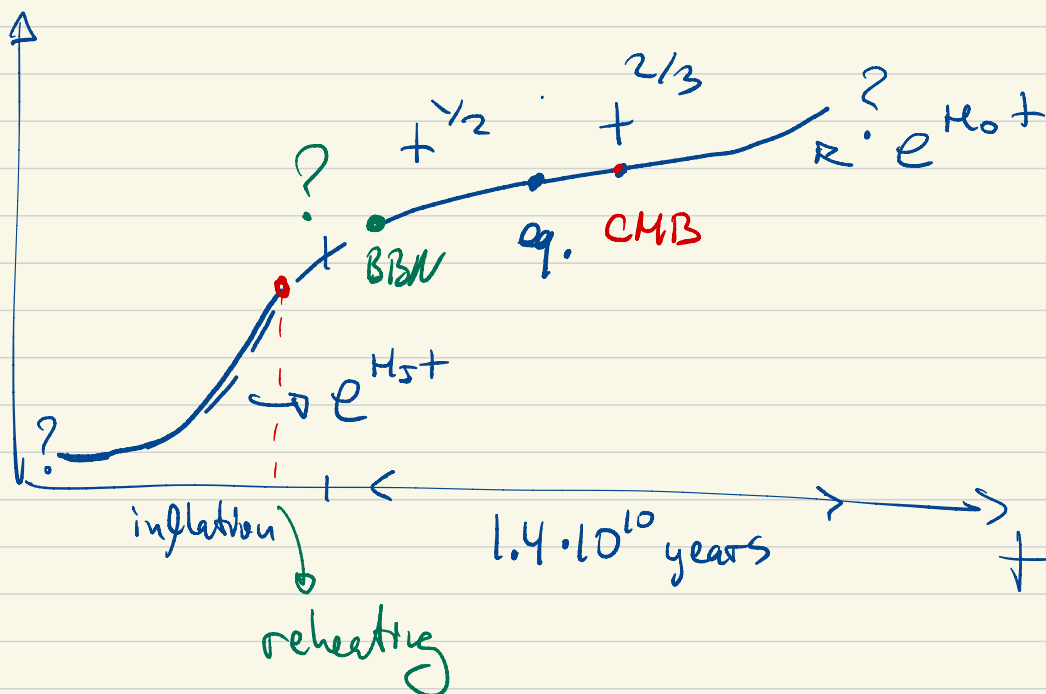 t^{2/3}
t^{1/2}
?
? e^{H_0 t}
BBN
eq.
CMB
e^{H_I t}
?
inflation
1.4·10^{10} years
t
reheating